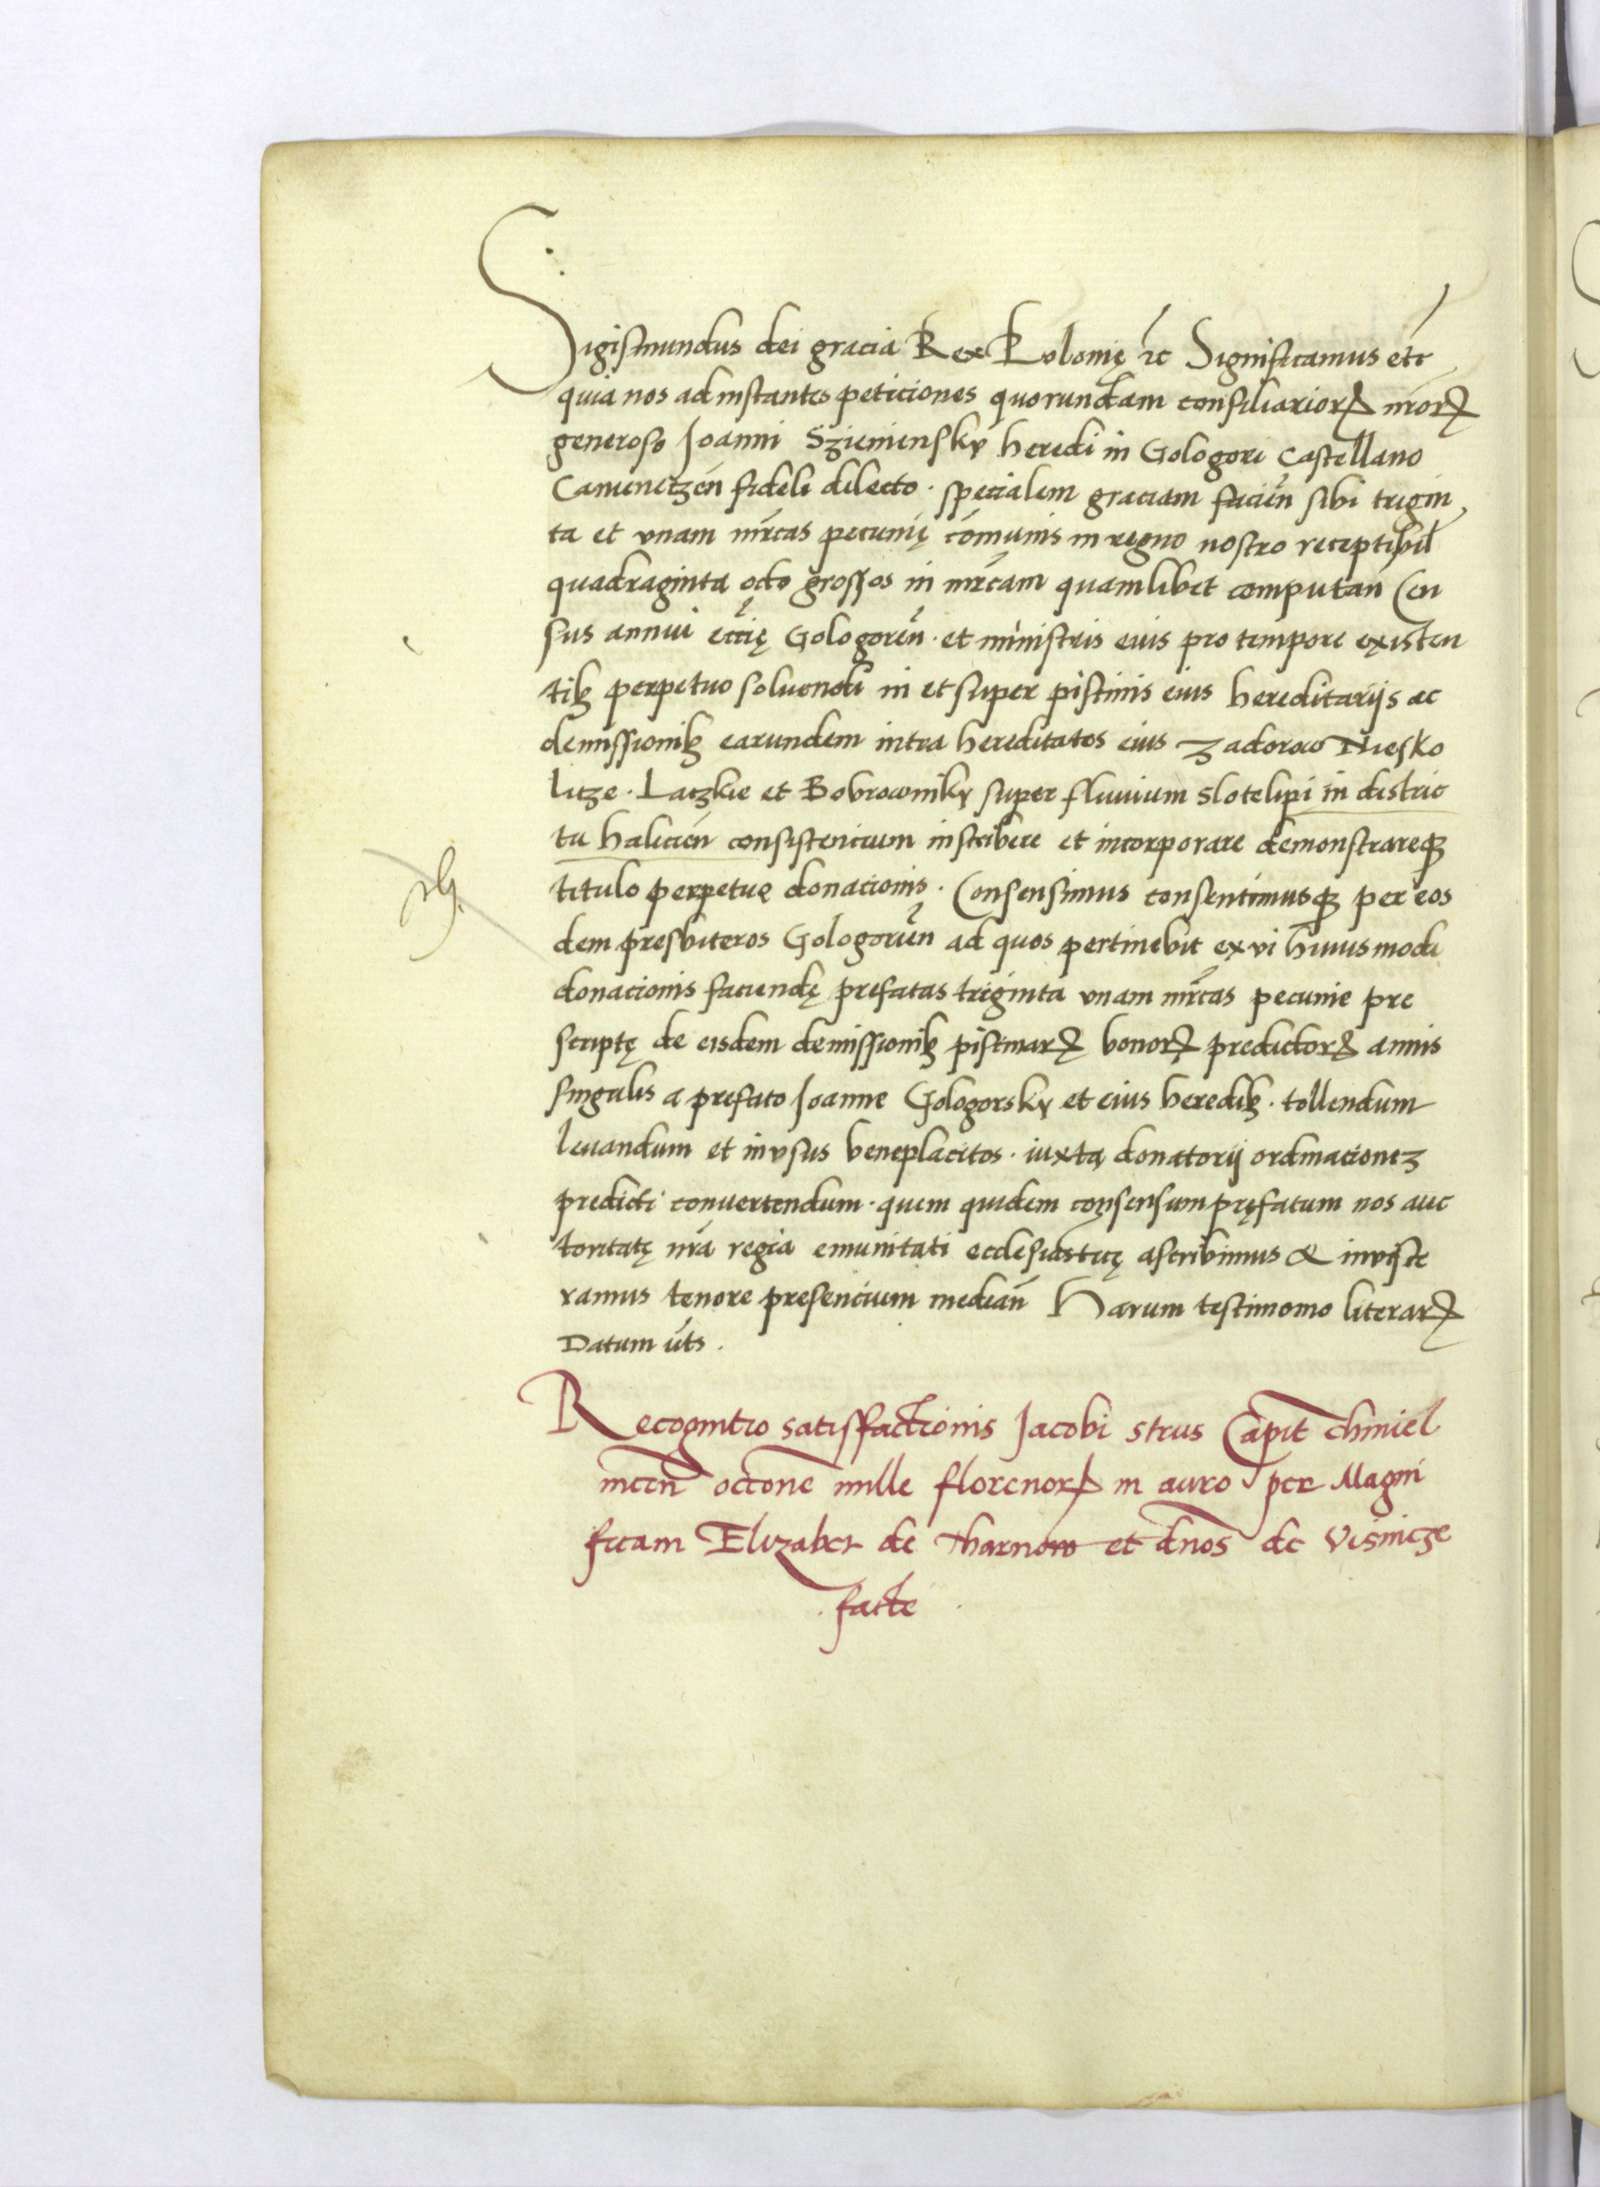 Sigismundus dei gracia Rex Polonię ꝛc Significamus etc
quia nos ad instantes peticiones quorundam consiliarioꝝ nr̄oꝝ
generoso Joanni Szieniensky heredi in Gologori Castellano
Camenetzen̄ fideli dilecto · specialem graciam facien̄ sibi trigin
ta et vnam mr̄cas pecunię cōmunis in regno nostro receptibil̄
quadraginta octo grossos in mr̄cam quamlibet computan̄ Cen
sus annui eccīę Gologoren̄ · et ministris eius pro tempore existen
tibꝫ perpetuo soluendi in et super piscinis eius hereditariis ac
demissionibꝫ earundem intra hereditates eius Zadorow Niesko
litze · Laczkie et Bobrowniky super fluuium slotelipi in distric
tu halicien̄ consistencium inscribere et incorporare demonstrareqꝫ
titulo perpetuę donacionis · Consensimus consentimusqꝫ per eos
dem presbiteros Gologorien̄ ad quos pertinebit ex vi huiusmodi
donacionis faciendę prefatas triginta vnam mr̄cas pecunie pre
scriptę de eisdem demissionibꝫ piscinaꝝ bonoꝝ predictoꝝ annis
singulis a prefato Joanne Gologorsky et eius heredibꝫ · tollendum
leuandum et in vsus beneplacitos · iuxta donatorij ordinacionez
predicti convertendum · quem quidem consensum pręfatum nos auc
toritatę nr̄a regia emunitati ecclesiasticę ascribimus & inviste
ramus tenore presencium median̄ Harum testimonio literaꝝ
Datum ut̄s .
Recognitio satisfactionis Jacobi strus Capit̄ chmiel
nicen̄ octone mille florenoꝝ in auro per Magni
ficam Elizabet de Tharnow et dn̄os de Visnicze
. facte .